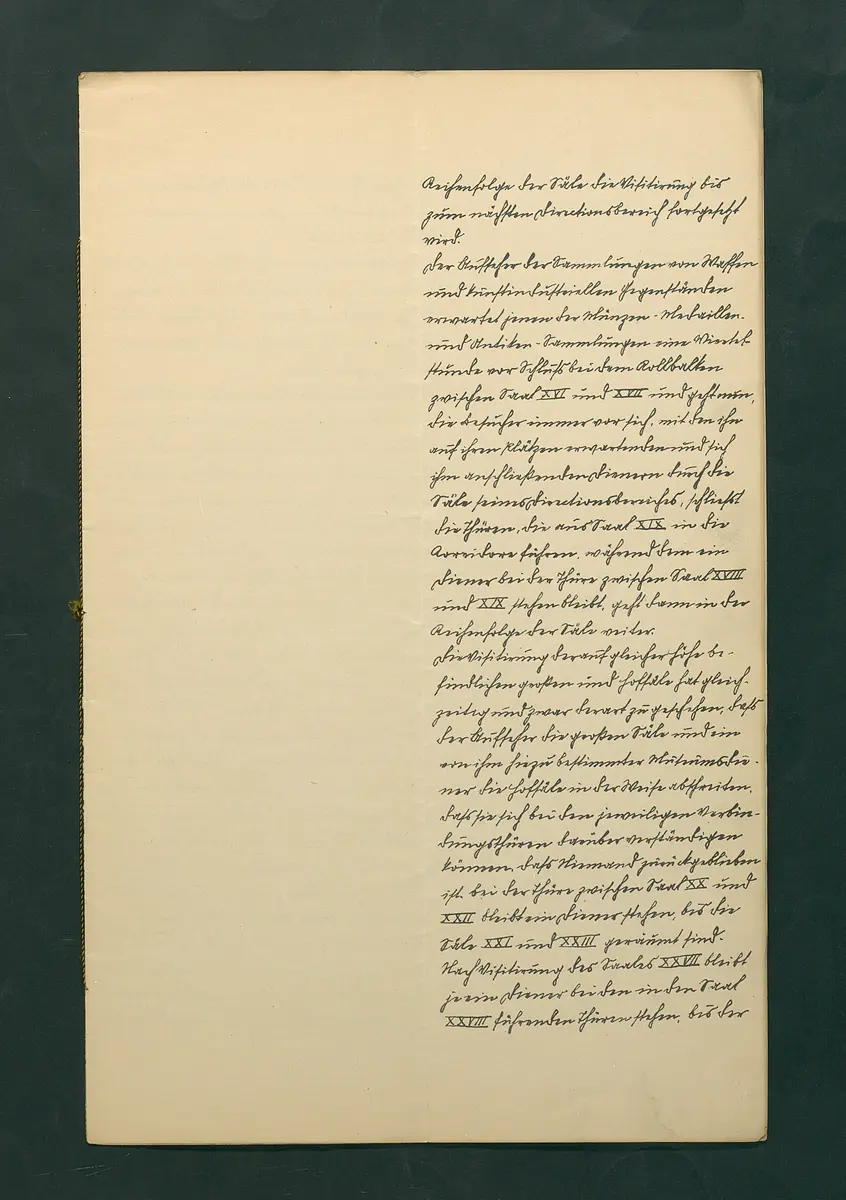 Reihenfolge der Säle die Visitirung bis
zum nächsten Directionsbereich fortgesetzt
wird.
Der Aufseher der Sammlungen von Waffen
und kunstindustriellen Gegenständen
erwartet jenen der Münzen- Medaillen-
und Antiken-Sammlungen eine Viertel-
stunde vor Schluß bei dem Rollbalken
zwischen Saal XVI und XVII und geht nun,
die Besucher immer vor sich, mit den ihn
auf ihren Plätzen erwartenden und sich
ihm anschließenden Dienern durch die
Säle seines Directionsbereiches, schließt
die Thüren, die aus Saal XIX in die
Korridore führen, während dem ein
Diener bei der Thüre zwischen Saal XVIII
und XIX stehen bleibt, geht dann in der
Reihenfolge der Säle weiter.
Die Visitirung der auf gleicher Höhe be-
findlichen großen und Hofsäle hat gleich-
zeitig und zwar derart zu geschehen, daß
der Aufseher die großen Säle und ein
von ihm hiezu bestimmter Museumsdie-
ner die Hofsäle in der Weise abschreiten,
daß sie sich bei den jeweiligen Verbin-
dungsthüren darüber verständigen
können, daß Niemand zurückgeblieben
ist. Bei der Thüre zwischen Saal XX und
XXII bleibt ein Diener stehen, bis die
Säle XXI und XXIII geräumt sind.
Nach Visitirung des Saales XXVII bleibt
je ein Diener bei den in den Saal
XXVIII führenden Thüren stehen, bis der